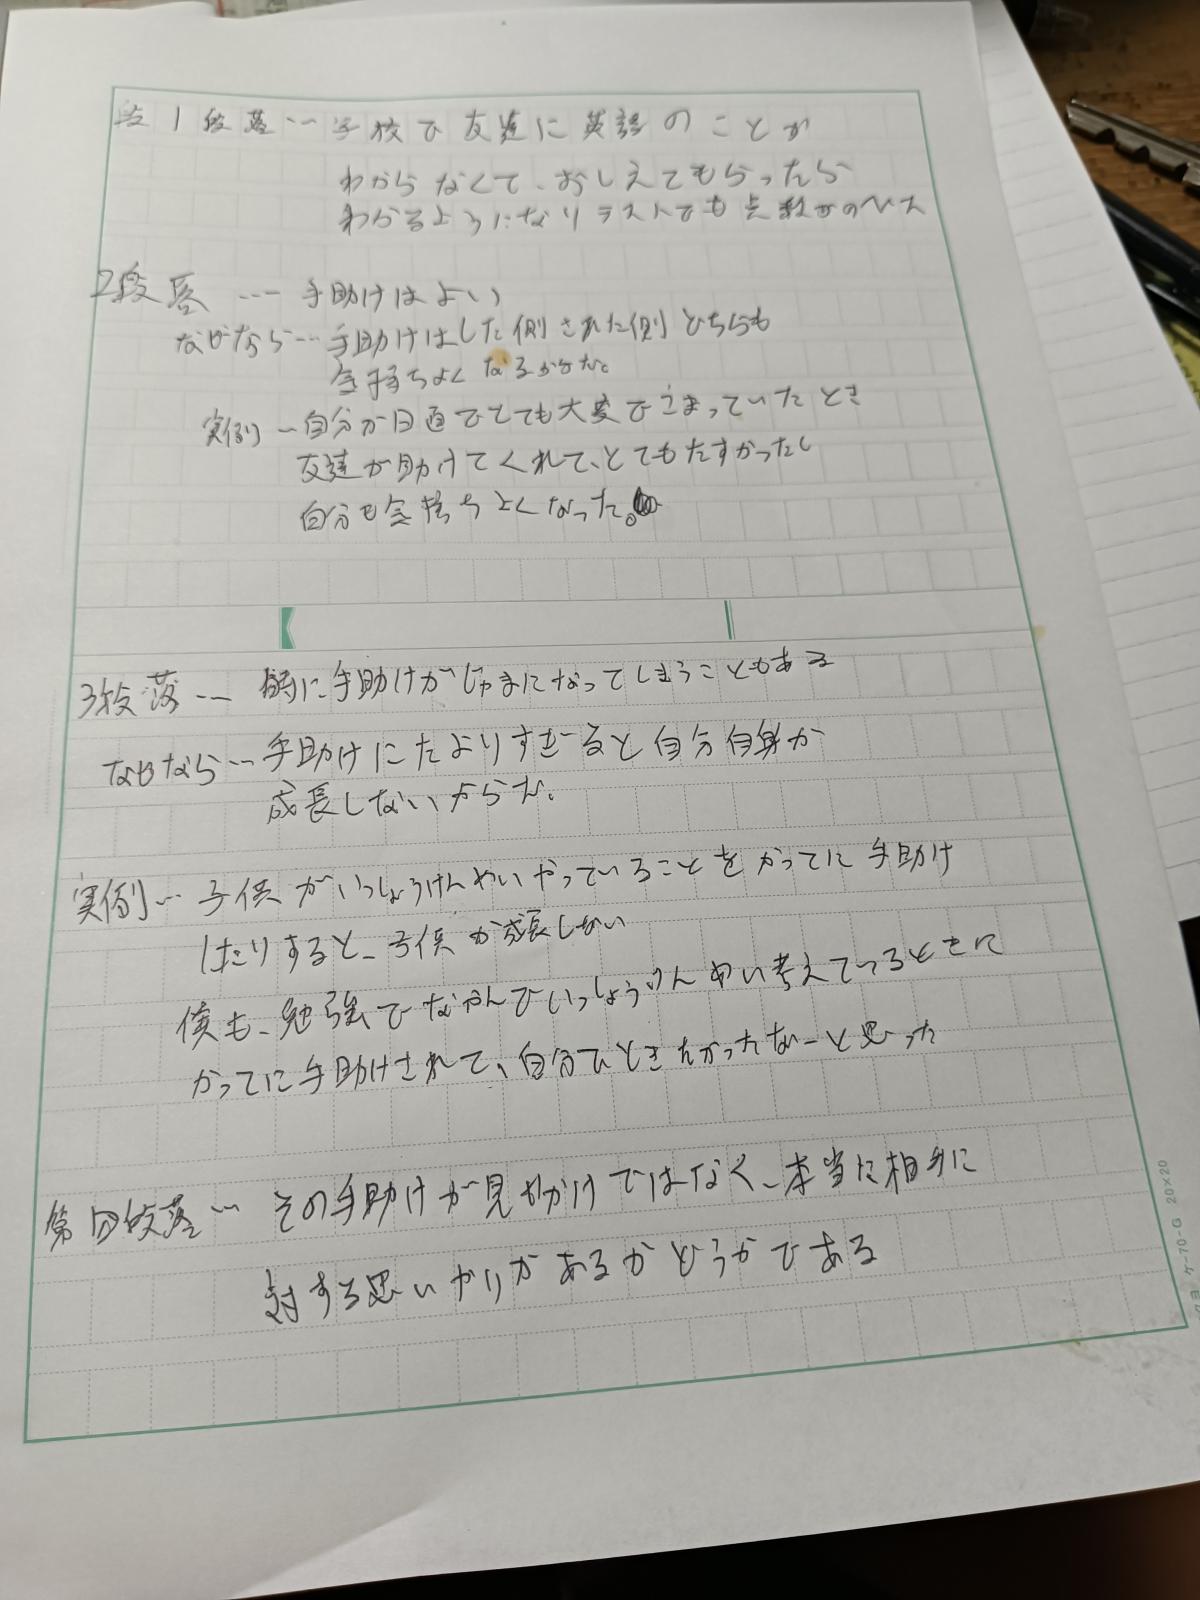 第1段落… 学校で友達に英語のことが
わからなくて、おしえてもらったら
わかるようになりテストでも点数がのびた
2段落 … 手助けはよい
なぜなら… 手助けはした側された側どちらも
気持ちよくなるからだ。
実例 … 自分が日直でとても大変でこまっていたとき
友達が助けてくれて、とてもたすかったし
自分も気持ちよくなった。
3段落 … 時に手助けがじゃまになってしまうこともある
なぜなら… 手助けにたよりすぎると自分自身が
成長しないからだ。
実例… 子供がいっしょうけんめいやっていることをかってに手助け
したりすると、子供が成長しない
僕も、勉強でなやんでいっしょうけんめい考えているときに
かってに手助けされて、自分でときたかったなーと思った
第四段落… その手助けが見せかけではなく、本当に相手に
対する思いやりがあるかどうかである
ケ-70-G 20×20